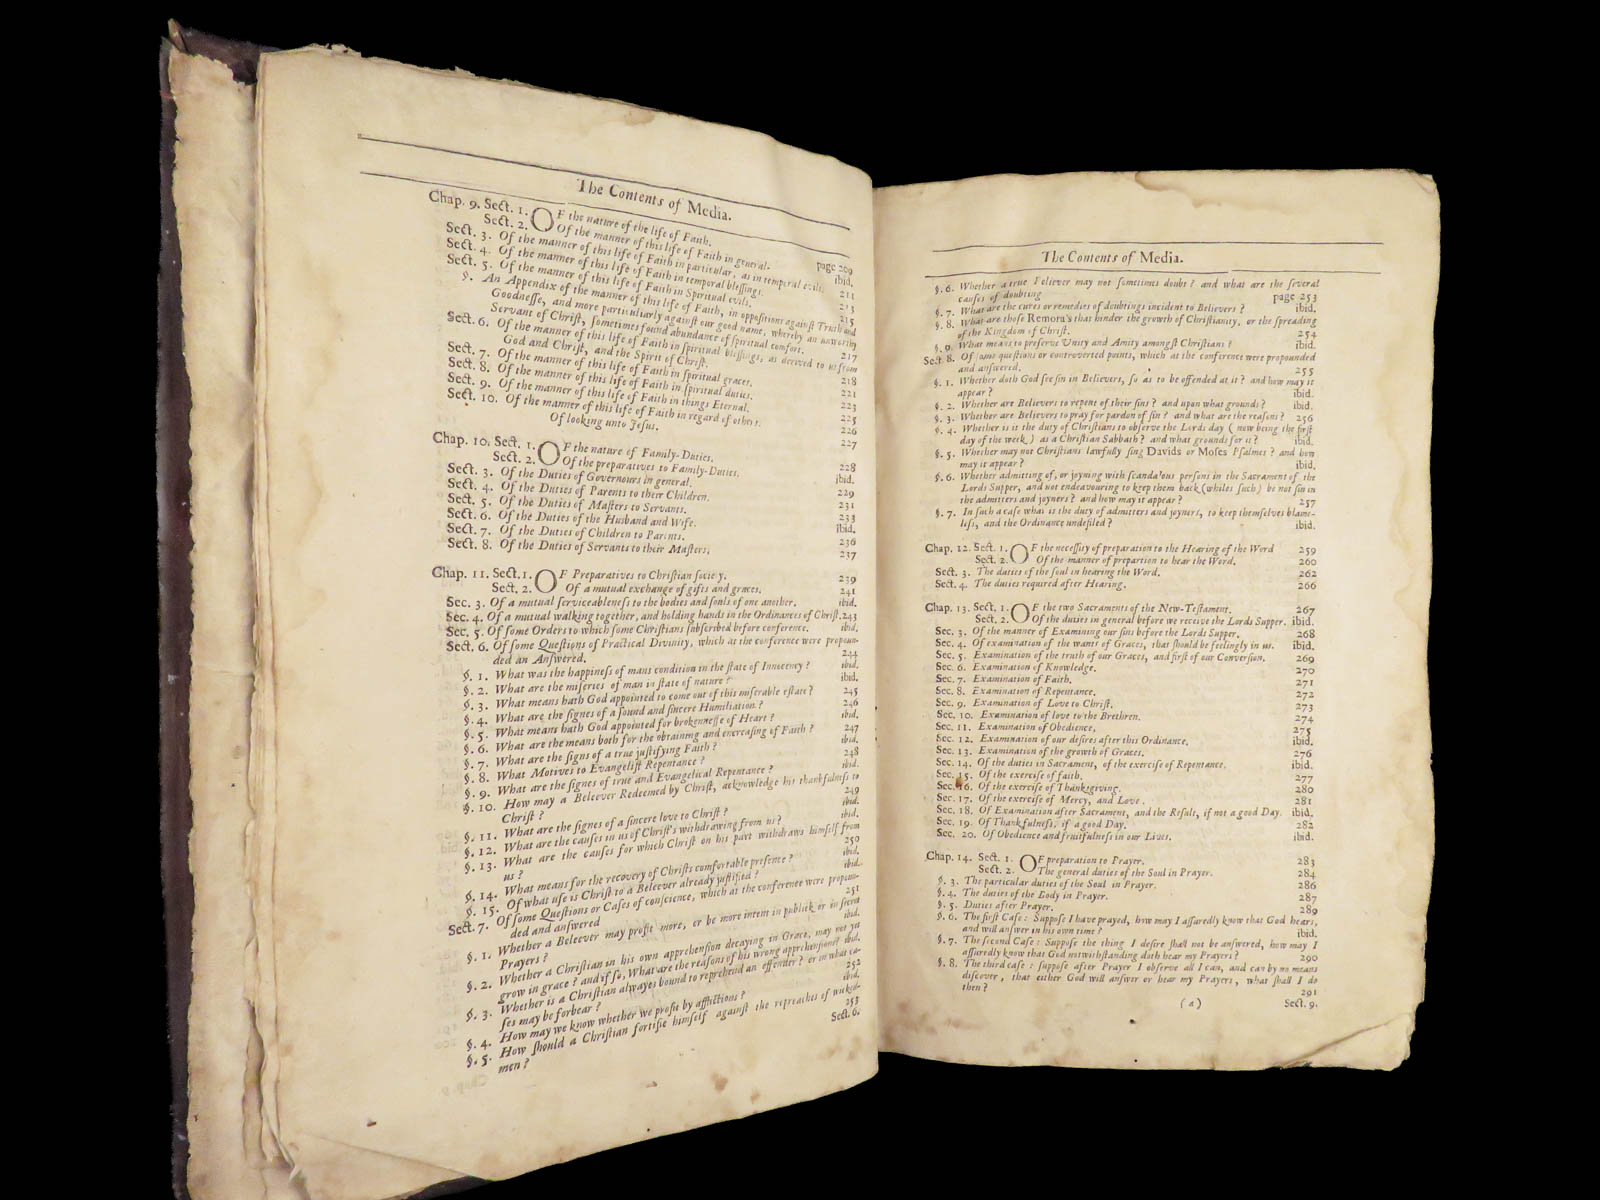 The Contents of Media.
Chap. 9. Sect. 1. OF the nature of the life of Faith. page 209
Sect. 2. Of the manner of this life of Faith in general. ibid.
Sect. 3. Of the manner of this life of Faith in particular, as in temporal evils. 211
Sect. 4. Of the manner of this life of Faith in temporal bleſſings. 213
Sect. 5. Of the manner of this life of Faith in Spiritual evils. 215
§. An Appendix of the manner of this life of Faith, in oppoſitions againſt Truth and
Goodneſſe, and more particularly againſt our good name, whereby an unworthy
Servant of Chriſt, ſometimes found abundance of ſpiritual comfort. 217
Sect. 6. Of the manner of this life of Faith in ſpiritual bleſſings, as derived to us from
God and Chriſt, and the Spirit of Chriſt. 218
Sect. 7. Of the manner of this life of Faith in ſpiritual graces. 221
Sect. 8. Of the manner of this life of Faith in ſpiritual duties. 223
Sect. 9. Of the manner of this life of Faith in things Eternal. 225
Sect. 10. Of the manner of this life of Faith in regard of others. 226
Of looking unto Jeſus. 227
Chap. 10. Sect. 1. OF the nature of Family-Duties. 228
Sect. 2. Of the preparatives to Family-Duties. ibid.
Sect. 3. Of the Duties of Governours in general. 229
Sect. 4. Of the Duties of Parents to their Children. 231
Sect. 5. Of the Duties of Maſters to Servants. 233
Sect. 6. Of the Duties of the Husband and Wife. ibid.
Sect. 7. Of the Duties of Children to Parents. 236
Sect. 8. Of the Duties of Servants to their Maſters. 237
Chap. 11. Sect. 1. OF Preparatives to Chriſtian ſociety. 239
Sect. 2. Of a mutual exchange of gifts and graces. 241
Sec. 3. Of a mutual ſerviceableneſs to the bodies and ſouls of one another. ibid.
Sec. 4. Of a mutual walking together, and holding hands in the Ordinances of Chriſt. 243
Sec. 5. Of ſome Orders to which ſome Chriſtians ſubſcribed before conference. ibid.
Sect. 6. Of ſome Queſtions of Practical Divinity, which at the conference were propoun-
ded an Anſwered. 244
§. 1. What was the happineſs of mans condition in the ſtate of Innocency? ibid.
§. 2. What are the miſeries of man in ſtate of nature? ibid.
§. 3. What means hath God appointed to come out of this miſerable eſtate? 245
§. 4. What are the ſignes of a ſound and ſincere Humiliation? 246
§. 5. What means hath God appointed for brokenneſſe of Heart? ibid.
§. 6. What are the means both for the obtaining and encreaſing of Faith? 247
§. 7. What are the ſigns of a true juſtifying Faith? ibid.
§. 8. What Motives to Evangeliſt Repentance? 248
§. 9. What are the ſignes of true and Evangelical Repentance? ibid.
§. 10. How may a Beleever Redeemed by Chriſt, acknowledge his thankfulneſs to
Chriſt? 249
§. 11. What are the ſignes of a ſincere love to Chriſt? ibid.
§. 12. What are the cauſes in us of Chriſt's withdrawing from us? ibid.
§. 13. What are the cauſes for which Chriſt on his part withdraws himſelf from
us? 250
§. 14. What means for the recovery of Chriſts comfortable preſence? ibid.
§. 15. Of what uſe is Chriſt to a Beleever already juſtified? ibid.
Sect. 7. Of ſome Queſtions or Caſes of conſcience, which at the conference were propoun-
ded and anſwered 251
§. 1. Whether a Beleever may profit more, or be more intent in publick or in ſecret
Prayers? ibid.
§. 2. Whether a Chriſtian in his own apprehenſion decaying in Grace, may not yet
grow in grace? and if ſo, What are the reaſons of his wrong apprehenſions? ibid.
§. 3. Whether is a Chriſtian alwayes bound to reprehend an offender? or in what ca-
ſes may be forbear? 252
§. 4. How may we know whether we profit by afflictions? ibid.
§. 5. How ſhould a Chriſtian fortifie himſelf againſt the reproaches of wicked-
men? 253
Sect. 6.
The Contents of Media.
§. 6. Whether a true Believer may not ſometimes doubt? and what are the ſeveral
cauſes of doubting page 253
§. 7. What are the cures or remedies of doubtings incident to Believers? ibid.
§. 8. What are thoſe Remora's that hinder the growth of Chriſtianity, or the ſpreading
of the Kingdom of Chriſt. 254
§. 9. What means to preſerve Unity and Amity amongſt Chriſtians? ibid.
Sect 8. Of ſome queſtions or controverted points, which at the conference were propounded
and anſwered. 255
§. 1. Whether doth God ſee ſin in Believers, ſo as to be offended at it? and how may it
appear? ibid.
§. 2. Whether are Believers to repent of their ſins? and upon what grounds? ibid.
§. 3. Whether are Believers to pray for pardon of ſin? and what are the reaſons? 256
§. 4. Whether is it the duty of Chriſtians to obſerve the Lords day (now being the firſt
day of the week) as a Chriſtian Sabbath? and what grounds for it? ibid.
§. 5. Whether may not Chriſtians lawfully ſing Davids or Moſes Pſalmes? and how
may it appear? ibid.
§. 6. Whether admitting of, or joyning with ſcandalous perſons in the Sacrament of the
Lords Supper, and not endeavouring to keep them back (whiles ſuch) be not ſin in
the admitters and joyners? and how may it appear? 257
§. 7. In ſuch a caſe what is the duty of admitters and joyners, to keep themſelves blame-
leſs, and the Ordinance undefiled? ibid.
Chap. 12. Sect. 1. OF the neceſſity of preparation to the Hearing of the Word 259
Sect. 2. Of the manner of prepartion to hear the Word. 260
Sect. 3. The duties of the ſoul in hearing the Word. 262
Sect. 4. The duties required after Hearing. 266
Chap. 13. Sect. 1. OF the two Sacraments of the New-Teſtament. 267
Sect. 2. Of the duties in general before we receive the Lords Supper. ibid.
Sec. 3. Of the manner of Examining our ſins before the Lords Supper. 268
Sec. 4. Of examination of the wants of Graces, that ſhould be feelingly in us. ibid.
Sec. 5. Examination of the truth of our Graces, and firſt of our Converſion. 269
Sec. 6. Examination of Knowledge. 270
Sec. 7. Examination of Faith. 271
Sec. 8. Examination of Repentance. 272
Sec. 9. Examination of Love to Chriſt. 273
Sec. 10. Examination of love to the Brethren. 274
Sec. 11. Examination of Obedience. 275
Sec. 12. Examination of our deſires after this Ordinance. ibid.
Sec. 13. Examination of the growth of Graces. 276
Sec. 14. Of the duties in Sacrament, of the exerciſe of Repentance. ibid.
Sec. 15. Of the exerciſe of faith. 277
Sec. 16. Of the exerciſe of Thankſgiving. 280
Sec. 17. Of the exerciſe of Mercy, and Love. 281
Sec. 18. Of Examination after Sacrament, and the Reſult, if not a good Day. ibid.
Sec. 19. Of Thankfulneſs, if a good Day. 282
Sec. 20. Of Obedience and fruitfulneſs in our Lives. ibid.
Chap. 14. Sect. 1. OF preparation to Prayer. 283
Sect. 2. The general duties of the Soul in Prayer. 284
§. 3. The particular duties of the Soul in Prayer. 286
§. 4. The duties of the Body in Prayer. 287
§. 5. Duties after Prayer. 289
§. 6. The firſt Caſe: Suppoſe I have prayed, how may I aſſuredly know that God hears,
and will anſwer in his own time? ibid.
§. 7. The second Caſe: Suppoſe the thing I deſire ſhall not be anſwered, how may I
aſſuredly know that God notwithſtanding doth hear my Prayers? 290
§. 8. The third caſe: ſuppoſe after Prayer I obſerve all I can, and can by no means
diſcover, that either God will anſwer or hear my Prayers, what ſhall I do
then? 291
(a) Sect. 9.